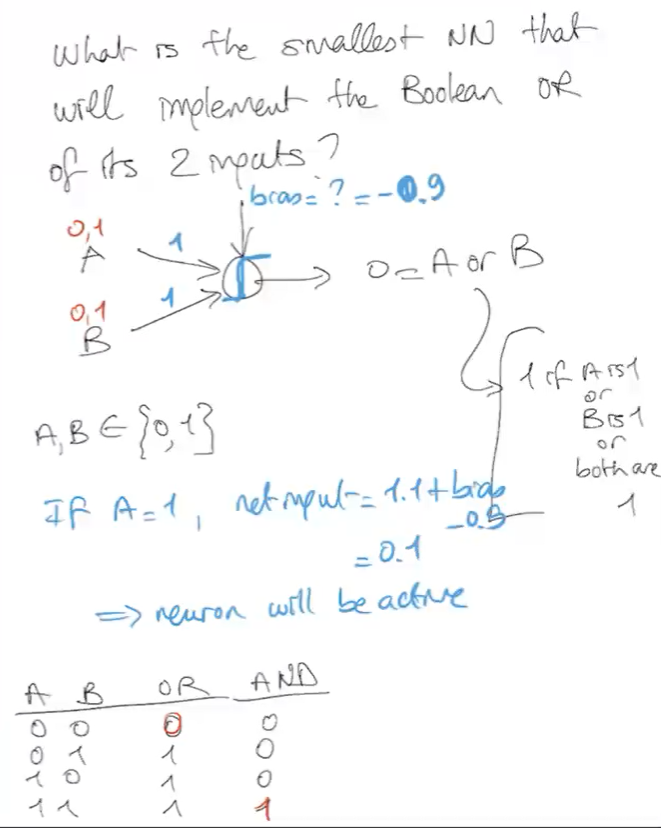 What is the smallest NN that
will implement the Boolean OR
of its 2 inputs?
bias = ? = -0.9
0,1
A
1
0,1
B
1
O = A or B
1 if A is 1
or
B is 1
or
both are
1
A, B ∈ {0,1}
If A=1, net input = 1.1 + bias
-0.9
= 0.1
=> neuron will be active
A B OR AND
0 0 0 0
0 1 1 0
1 0 1 0
1 1 1 1